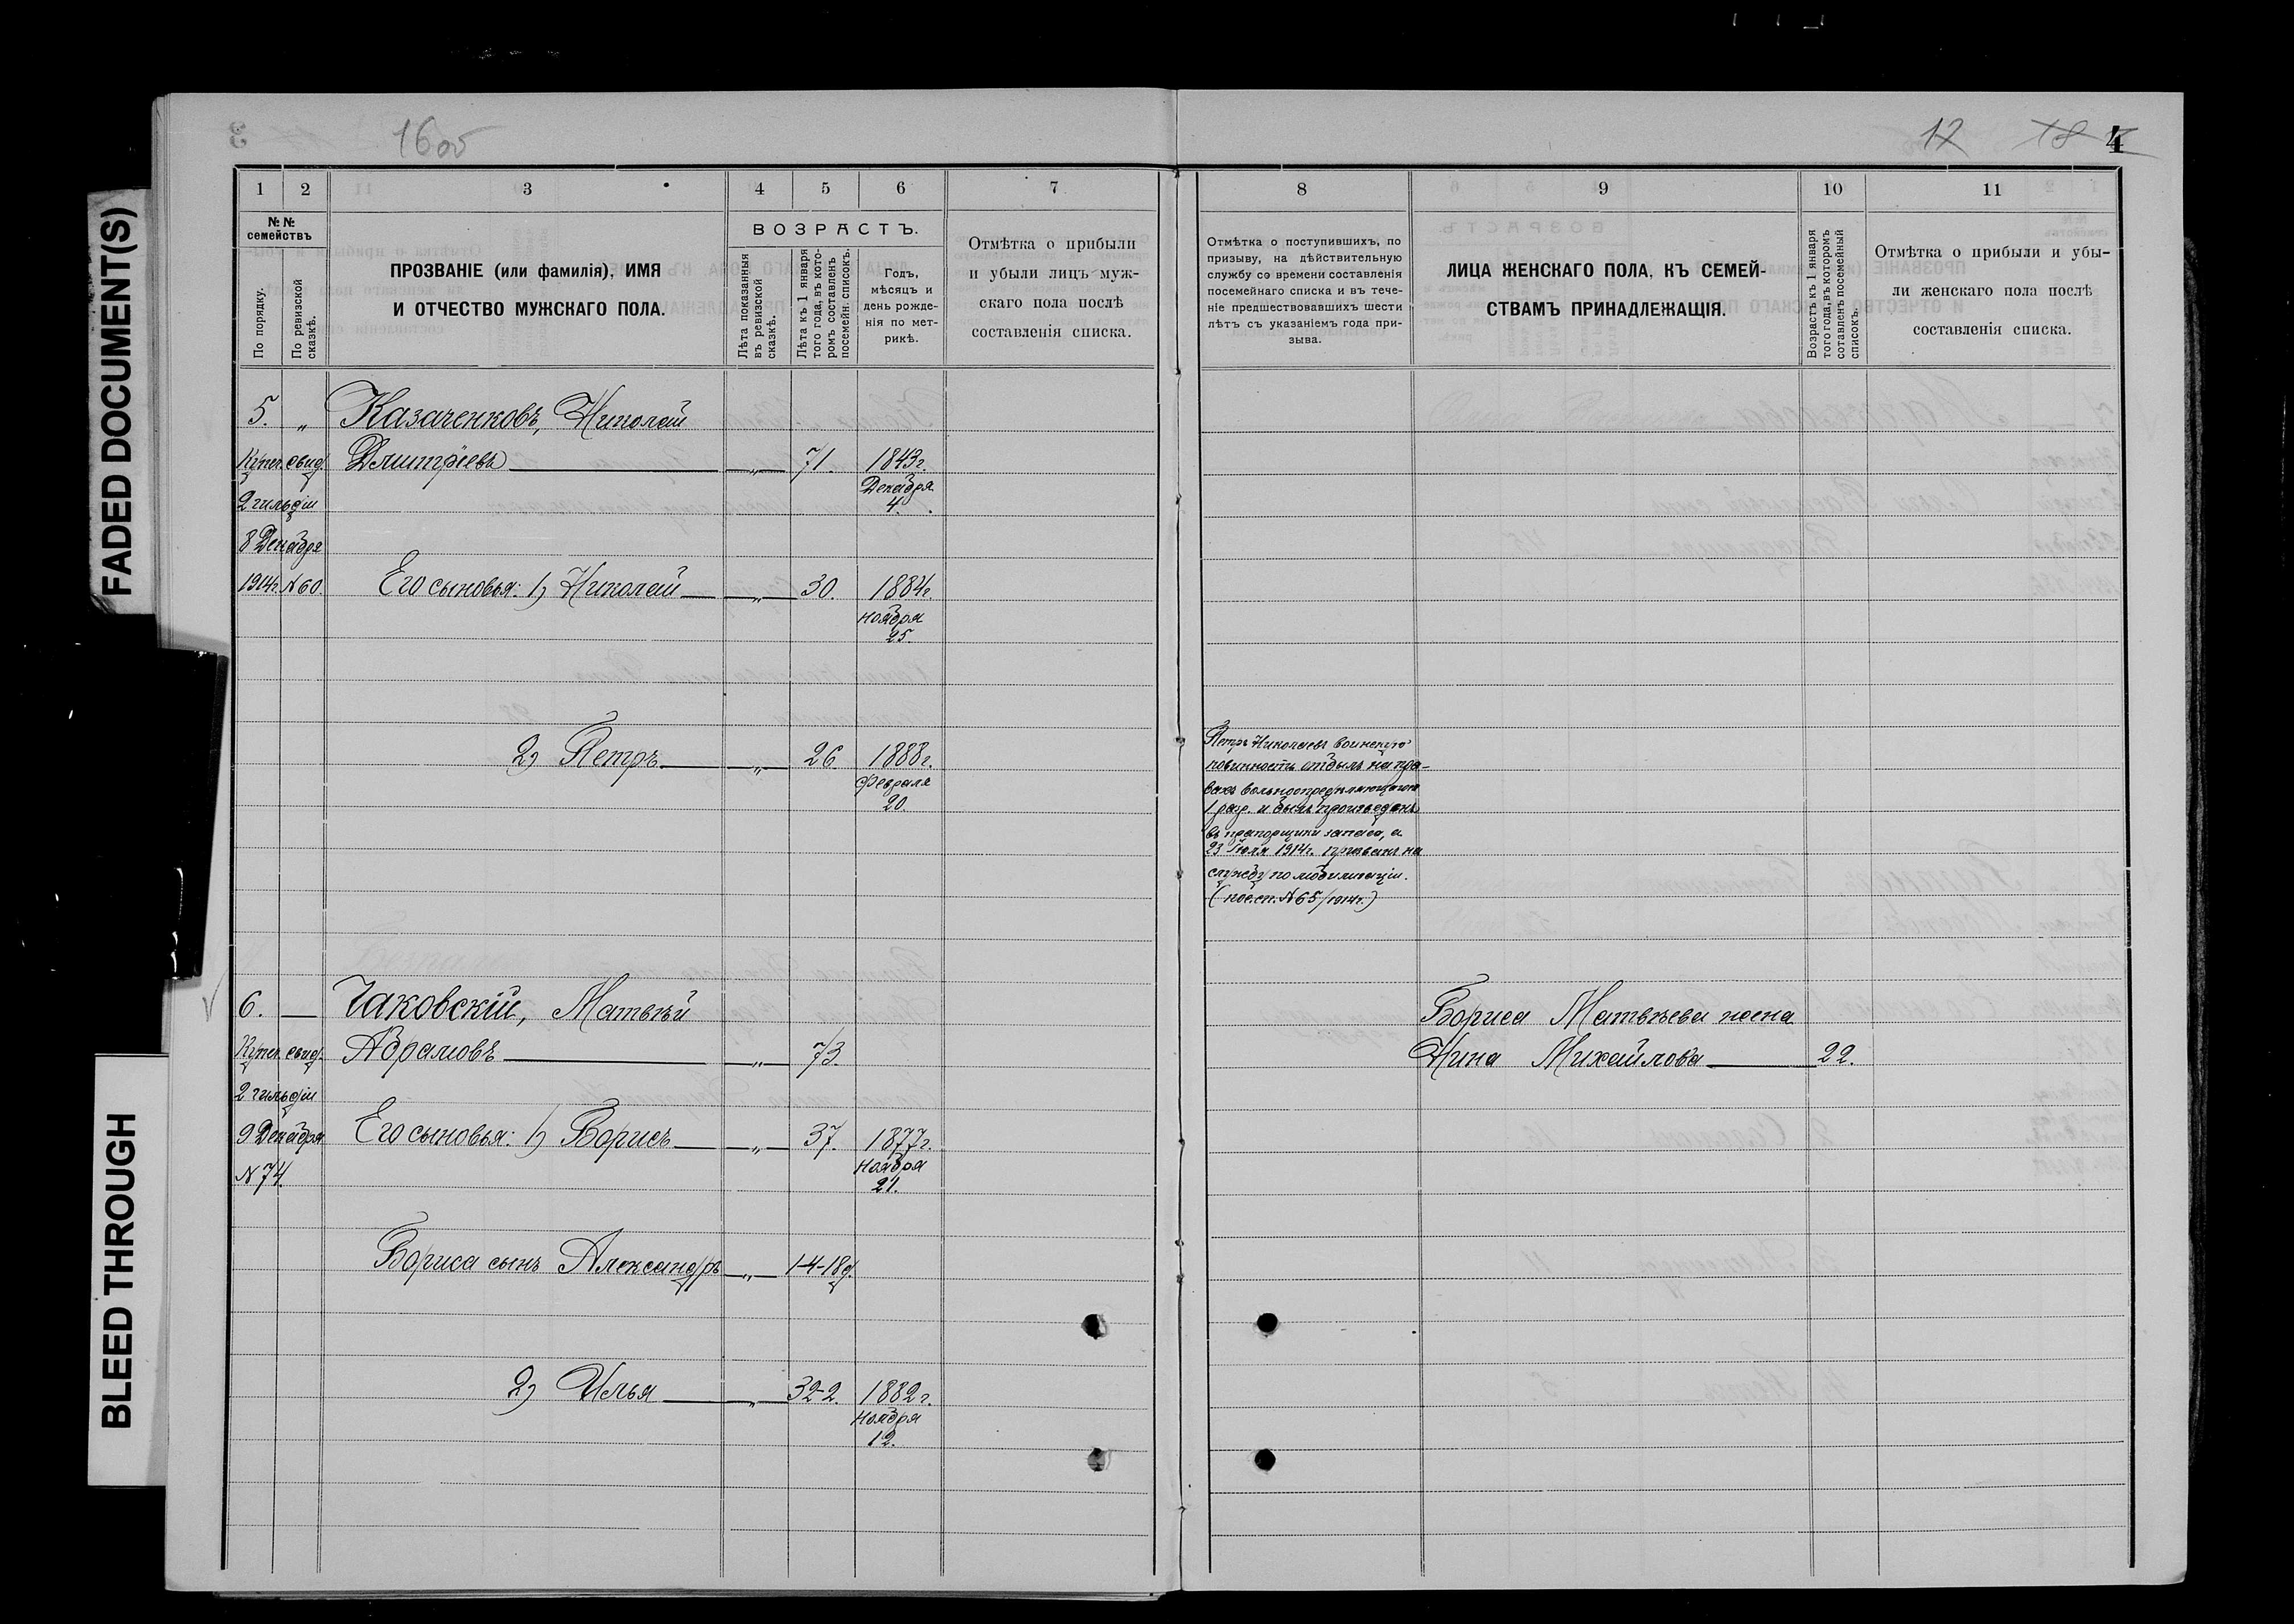 FADED DOCUMENT(S)
BLEED THROUGH
1600
12 18 4
1 2 3 4 5 6 7
№№ семействъ
По порядку.
По ревизской сказкѣ.
ПРОЗВАНІЕ (или фамилія), ИМЯ
И ОТЧЕСТВО МУЖСКАГО ПОЛА.
ВОЗРАСТЪ.
Лѣта показанныя въ ревизской сказкѣ.
Лѣта къ 1 января того года, въ которомъ составленъ посемейн. списокъ.
Годъ,
мѣсяцъ и
день рожде-
нія по мет-
рикѣ.
Отмѣтка о прибыли
и убыли лицъ муж-
скаго пола послѣ
составленія списка.
5. „ Казаченковъ, Николай
Купеч. свид. Дмитріевъ „ 71. 1843г.
Декабря
2 гильдіи 4.
8 Декабря
1914г. №60. Его сыновья: 1) Николай „ 30. 1884г.
ноября
25.
2) Петръ „ 26 1888г.
Февраля
20.
6. — Чаковскій, Матвѣй
Купеч. свид. Абрамовъ „ 73.
2 гильдіи
9 Декабря Его сыновья: 1) Борисъ „ 37. 1877г.
ноября
№74. 21.
Бориса сынъ Александръ „ 1-4-18д.
2) Илья „ 32-2. 1882г.
ноября
12.
8 9 10 11
Отмѣтка о поступившихъ, по
призыву, на дѣйствительную
службу со времени составленія
посемейнаго списка и въ тече-
ніе предшествовавшихъ шести
лѣтъ съ указаніемъ года при-
зыва.
ЛИЦА ЖЕНСКАГО ПОЛА, КЪ СЕМЕЙ-
СТВАМЪ ПРИНАДЛЕЖАЩІЯ.
Возрастъ къ 1 января того года, въ которомъ сотавленъ посемейный списокъ.
Отмѣтка о прибыли и убы-
ли женскаго пола послѣ
составленія списка.
Петръ Николаевъ воинскую
повинность отбылъ на пра-
вахъ вольноопредѣляющагося
1 разр. и былъ произведенъ
въ прапорщики запаса, а
23 Іюля 1914г. призванъ на
службу по мобилизаціи.
(пос.сп. №65/1914г.)
Бориса Матвѣева жена
Нина Михайлова 22.